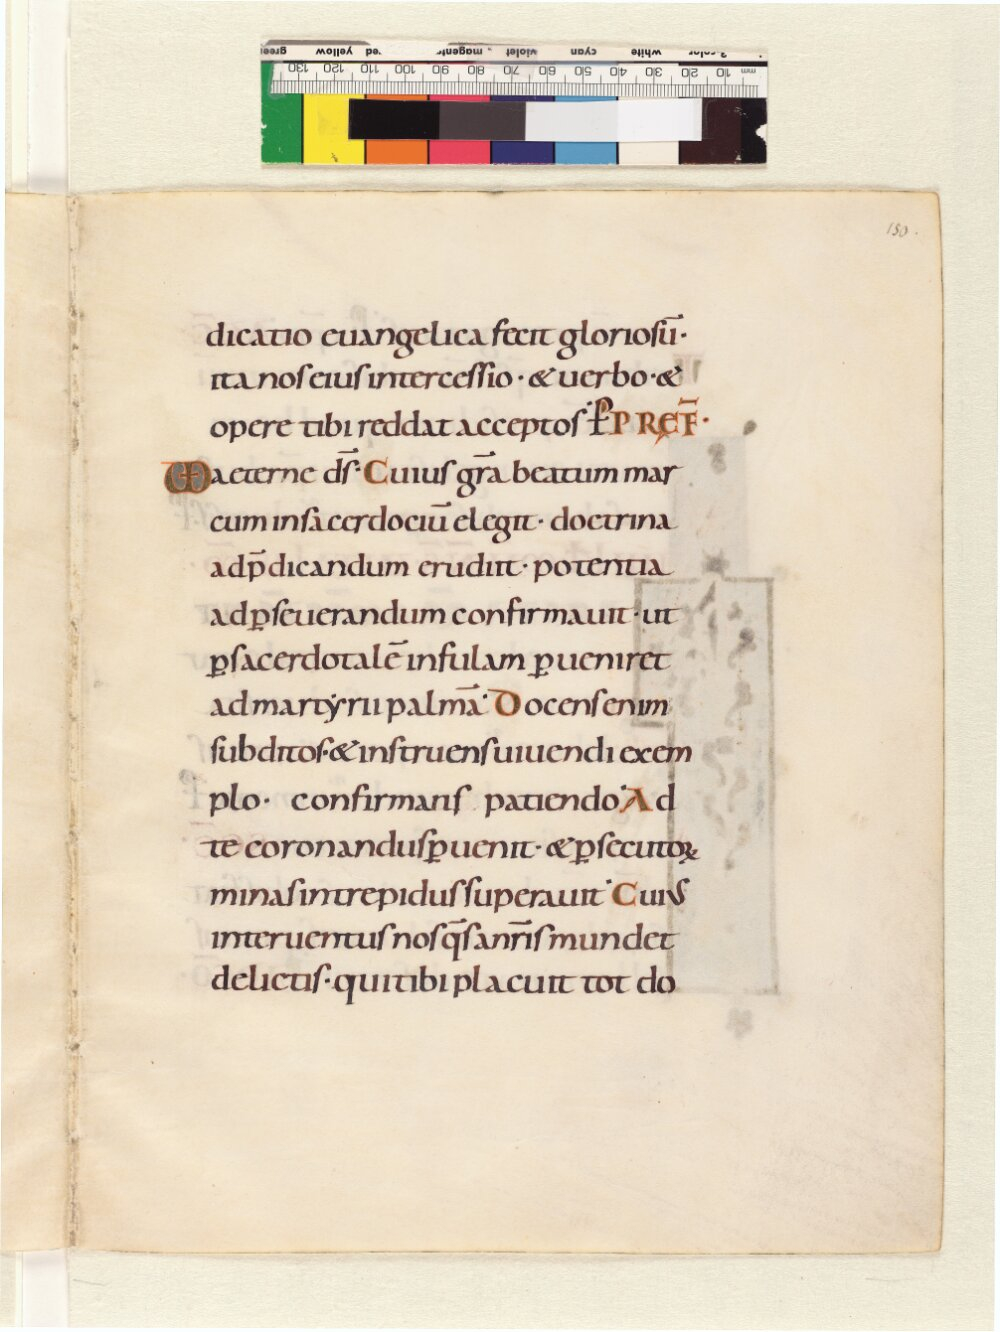 mm 10 20 30 40 50 60 70 80 90 100 110 120 130
150.
dicatio euangelica fecit gloriosū·
ita nos eius intercessio· & uerbo· &
opere tibi reddat acceptos· P̲ PREF̄·
VD aeterne d̄s· Cuius gr̄a beatum mar
cum in sacerdociū elegit· doctrina
ad p̄dicandum erudiit· potentia
ad ꝑseuerandum confirmauit· ut
ꝑ sacerdotalē infulam ꝑueniret
ad martẏrii palmā· Docens enim
subditos· & instruens uiuendi exem
plo· confirmans patiendo· Ad
te coronandus ꝑuenit· & ꝑsecutoꝝ
minas intrepidus superauit· Cuius
interuentus nos q̄s a nr̄is mundet
delictis· qui tibi placuit tot do